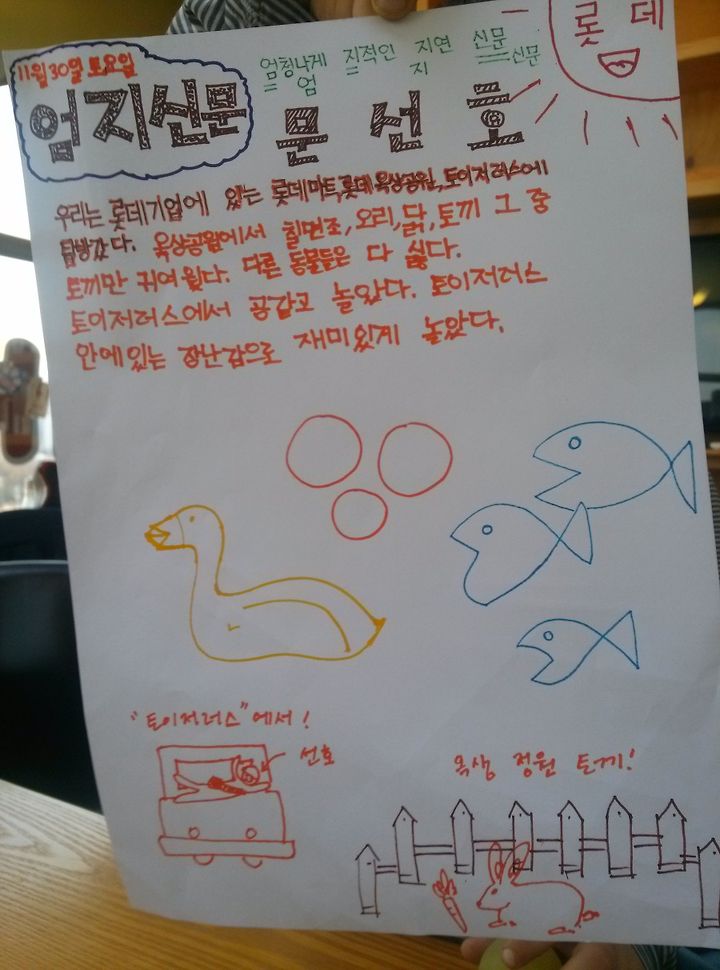 11월 30일 토요일
엄지신문
엄청나게 지적인 지연 신문
엄 지 신문
문선호
롯데
우리는 롯데기업에 있는 롯데마트,롯데옥상공원,토이저러스에
탐방갔다. 옥상공원에서 칠면조,오리,닭,토끼 그 중
토끼만 귀여웠다. 다른 동물들은 다 싫다.
토이저러스에서 공갖고 놀았다. 토이저러스
안에있는 장난감으로 재미있게 놀았다.
"토이저러스"에서!
선호
옥상 정원 토끼!